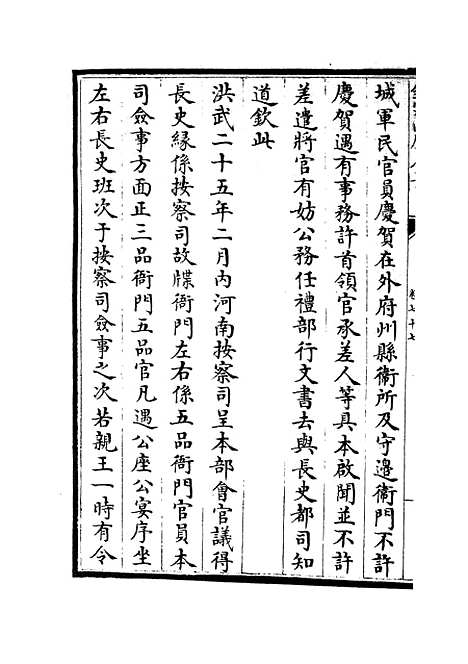 城軍民官員慶賀在外府州縣衞所及守邊衞門不許
慶賀遇有事務許首領官承差人等具本啟聞並不許
差遣將官有妨公務任禮部行文書去與長史都司知
道欽此
洪武二十五年二月內河南按察司呈本部會官議得
長史緣係按察司故牒衙門左右係五品衙門官員本
司僉事方面正三品衙門五品官凡遇公座公宴序坐
左右長史班次于按察司僉事之次若親王一時有令
卷七十七